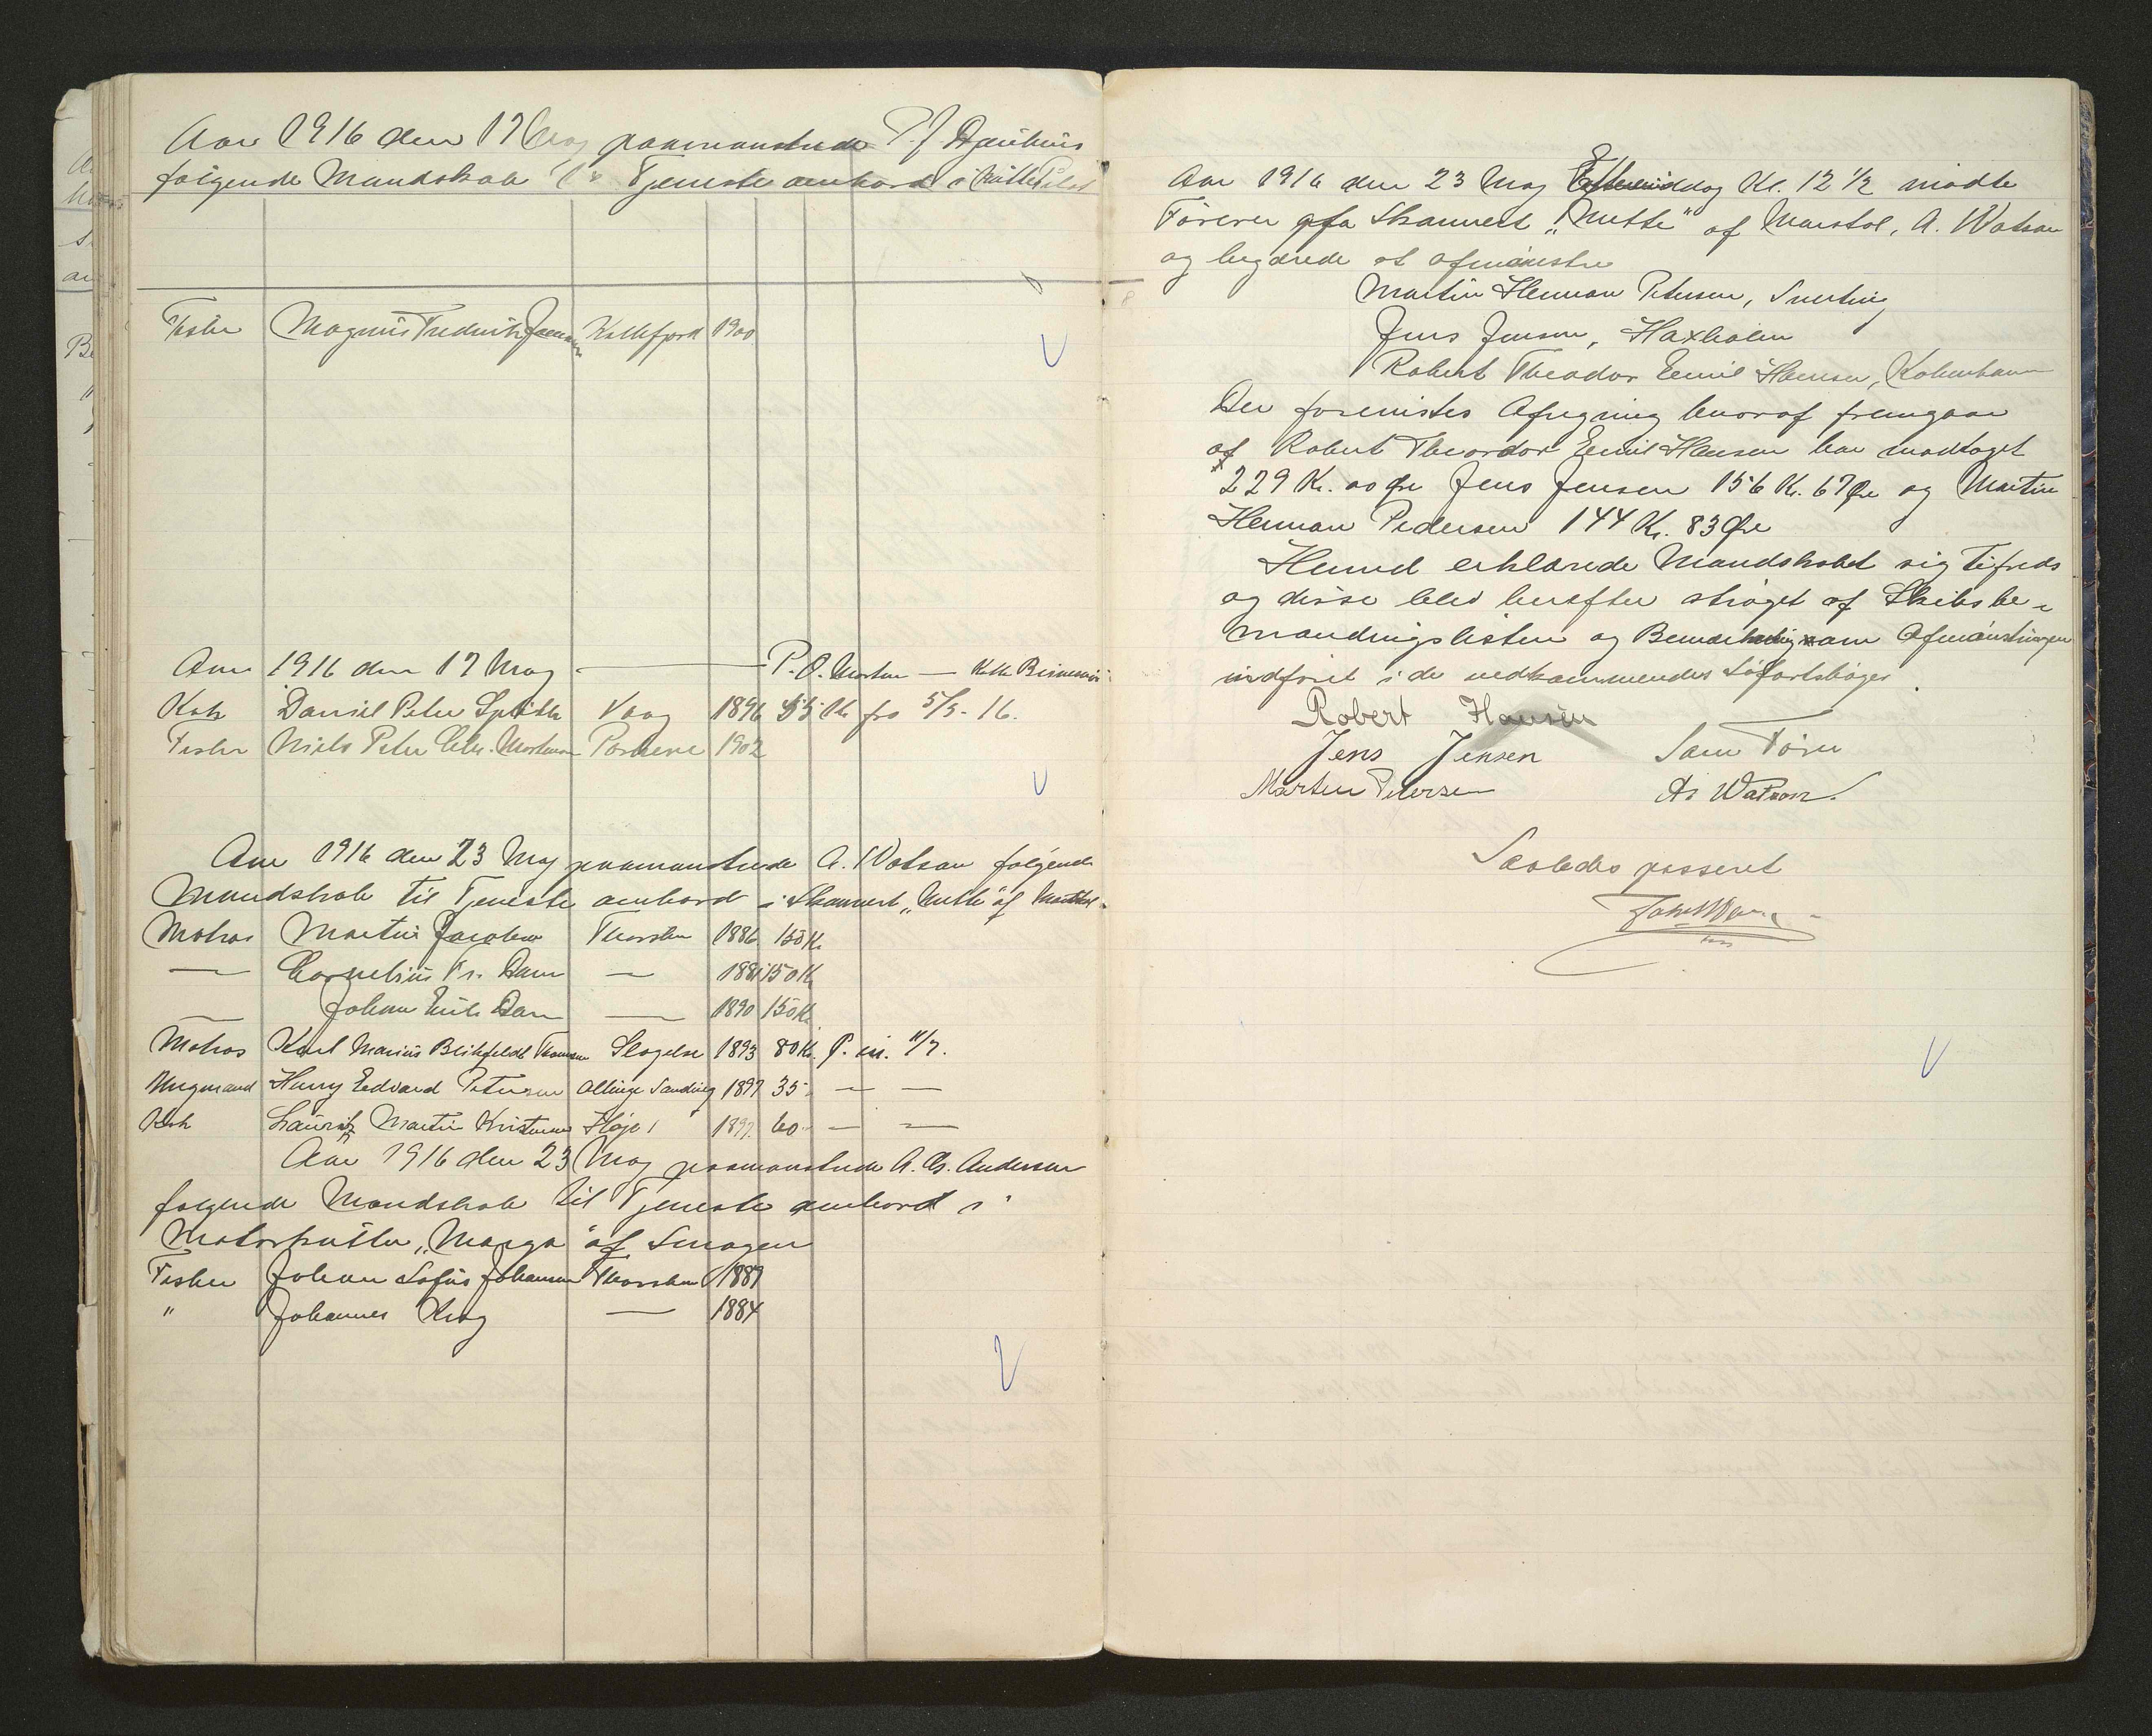 Aar 1916 den 17 Maj paamønstrede P. J. Djurhuus
følgende Mandskab til Tjeneste ombord i Kutter
Fisker Magnus Frederik Joensen Kollefjord 1900
Aar 1916 den 17 Maj — P. O. Morten — Kutt.
Kok Daniel Peter Vaag 1896 55 Kr fra 5/5-16.
Fisker Niels Peter Chr. Mortensen Porkere 1902
Aar 1916 den 23 Maj paamønstrede A. Watson følgende
Mandskab til Tjeneste ombord i Skonnert „Mette" af Marstal
Matros Martin Jacobsen Thorshn 1886 150 Kr.
— Cornelius Fr. Dam — 1881 150 Kr
— Johan Emil Dam — 1890 150 Kr.
Matros Karl Marius Blikfeldt Thomsen Slagelse 1893 80 Kr. P. m. 11/7.
Ungmand Harry Edvard Petersen Allinge Sandvig 1897 35 — —
Kok Lauritz Martin Kristensen Høje 1897 60 — —
Aar 1916 den 23 Maj paamønstrede A. Chr. Andersen
følgende Mandskab til Tjeneste ombord i
Motorkutter „Marga" af Skagen
Fisker Johan Sofus Johansen Thorshn 1887
" Johannes Krog — 1884
Aar 1916 den 23 Maj Eftermiddag Kl. 12 1/2 mødte
Føreren af Skonnert „Mette" af Marstal, A. Watson
og begærede at afmønstre
Martin Herman Petersen, Snertinge
Jens Jensen, Haxholm
Robert Theodor Emil Hansen, København
Der forevistes Afregning hvoraf fremgaar
at Robert Theordor Emil Hansen har modtaget
229 Kr. 00 Øre Jens Jensen 156 Kr. 67 Øre og Martin
Herman Pedersen 144 Kr. 83 Øre
Hermed erklærede Mandskabet sig tifreds
og disse blev herefter strøget af Skibsbe-
mandingslisten og Bemærkning om Afmønstringen
indført i de vedkommendes Søfartsbøger.
Robert Hansen
Jens Jensen Som Fører
Martin Petersen A. Watson.
Saaledes passeret